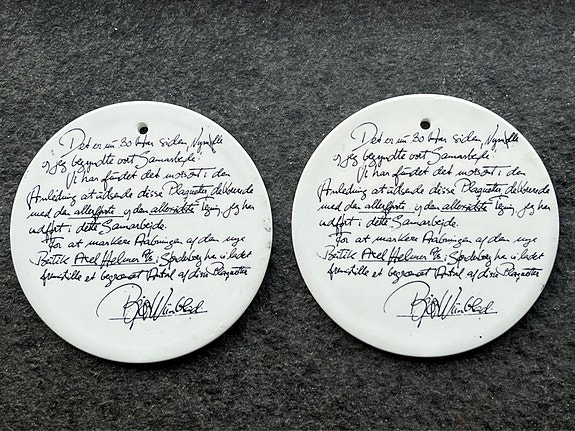 Det er nu 30 Aar siden, Nymølle
og jeg begyndte vort Samarbejde.
Vi har fundet det morsomt i den
Anledning at udsende disse Plaquetter, delborende
med den allerførste og den allersidste Tegning, jeg har
udført i dette Samarbejde.
For at markere Aabningen af den nye
Butik Axel Helmer A/S i Søndervig har vi ladet
fremstille et begrænset Antal af disse Plaquetter
Bjørn Wiinblad
Det er nu 30 Aar siden, Nymølle
og jeg begyndte vort Samarbejde.
Vi har fundet det morsomt i den
Anledning at udsende disse Plaquetter,
med den allerførste og den allersidste Tegning, jeg har
udført i dette Samarbejde.
For at markere Aabningen af den nye
Butik Axel Helmer A/S i har vi ladet
fremstille et begrænset Antal af disse Plaquetter
Bjørn Wiinblad